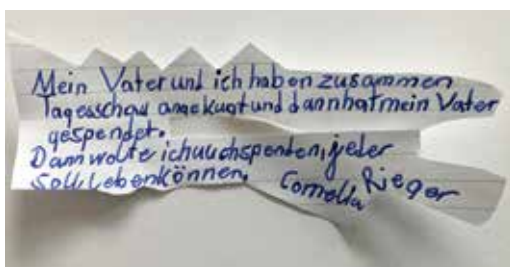 Mein Vater und ich haben zusammen
Tagesschau angekugt und dann hat mein Vater
gespendet.
Dann wolte ich auch spenden, jeder
soll leben können. Cornelia Rieger